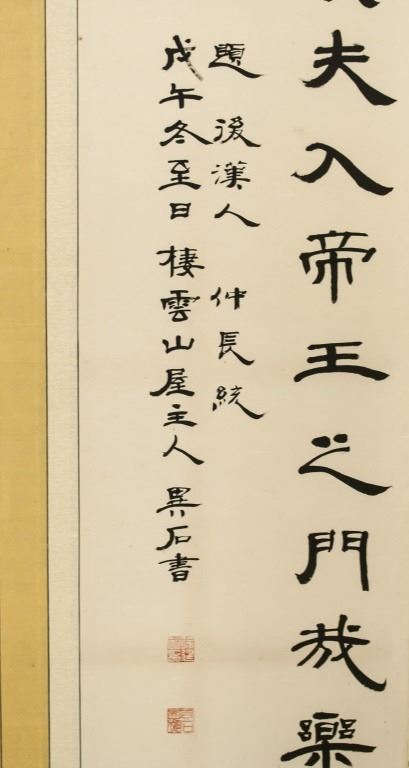 夫入帝王之門哉樂
題後漢人 仲長統
戊午冬至日 棲雲山屋主人 異石書